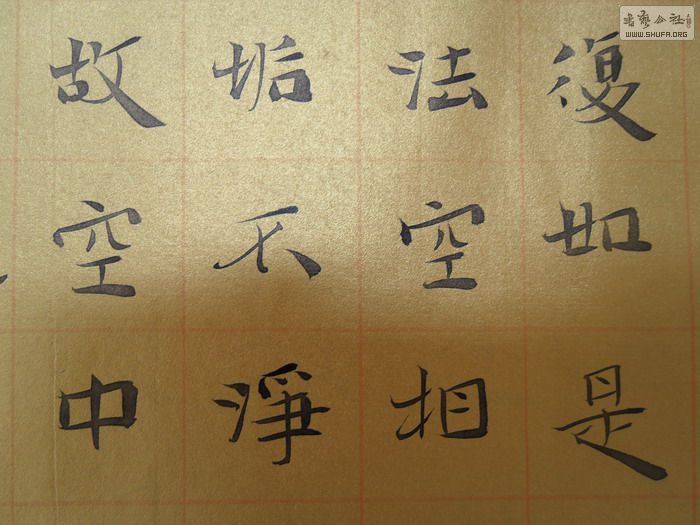 復如是
法空相
垢不淨
故空中
書藝公社
WWW.SHUFA.ORG